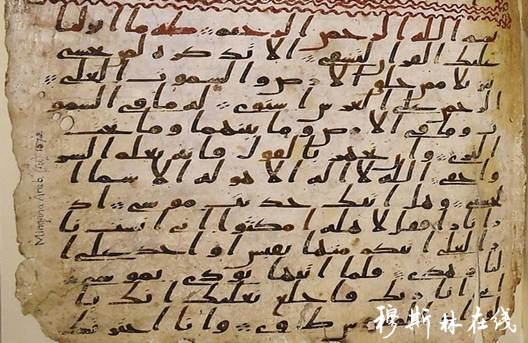 بسم الله الرحمن الرحيم طه ما انزلنا
عليك القران لتشقى الا تذكرة لمن يخشى
تنزيلا ممن خلق الارض والسموت العلى
الرحمن على العرش استوى له ما في السمو
ت وما في الارض وما بينهما وما تحت
الثرى وان تجهر بالقول فانه يعلم السر
واخفى الله لا اله الا هو له الاسما ا
لحسنى وهل اتيك حديث موسى اذ
را نارا فقل لاهله امكثوا اني انست نا
را لعلي اتيكم منها بقبس او اجد على ا
لنار هدى فلما اتيها نودي يموسى
اني انا ربك فاخلع نعليك انك با
لواد المقدس طوى وانا اخترتك
Mingana Arab 1572
穆斯林在线